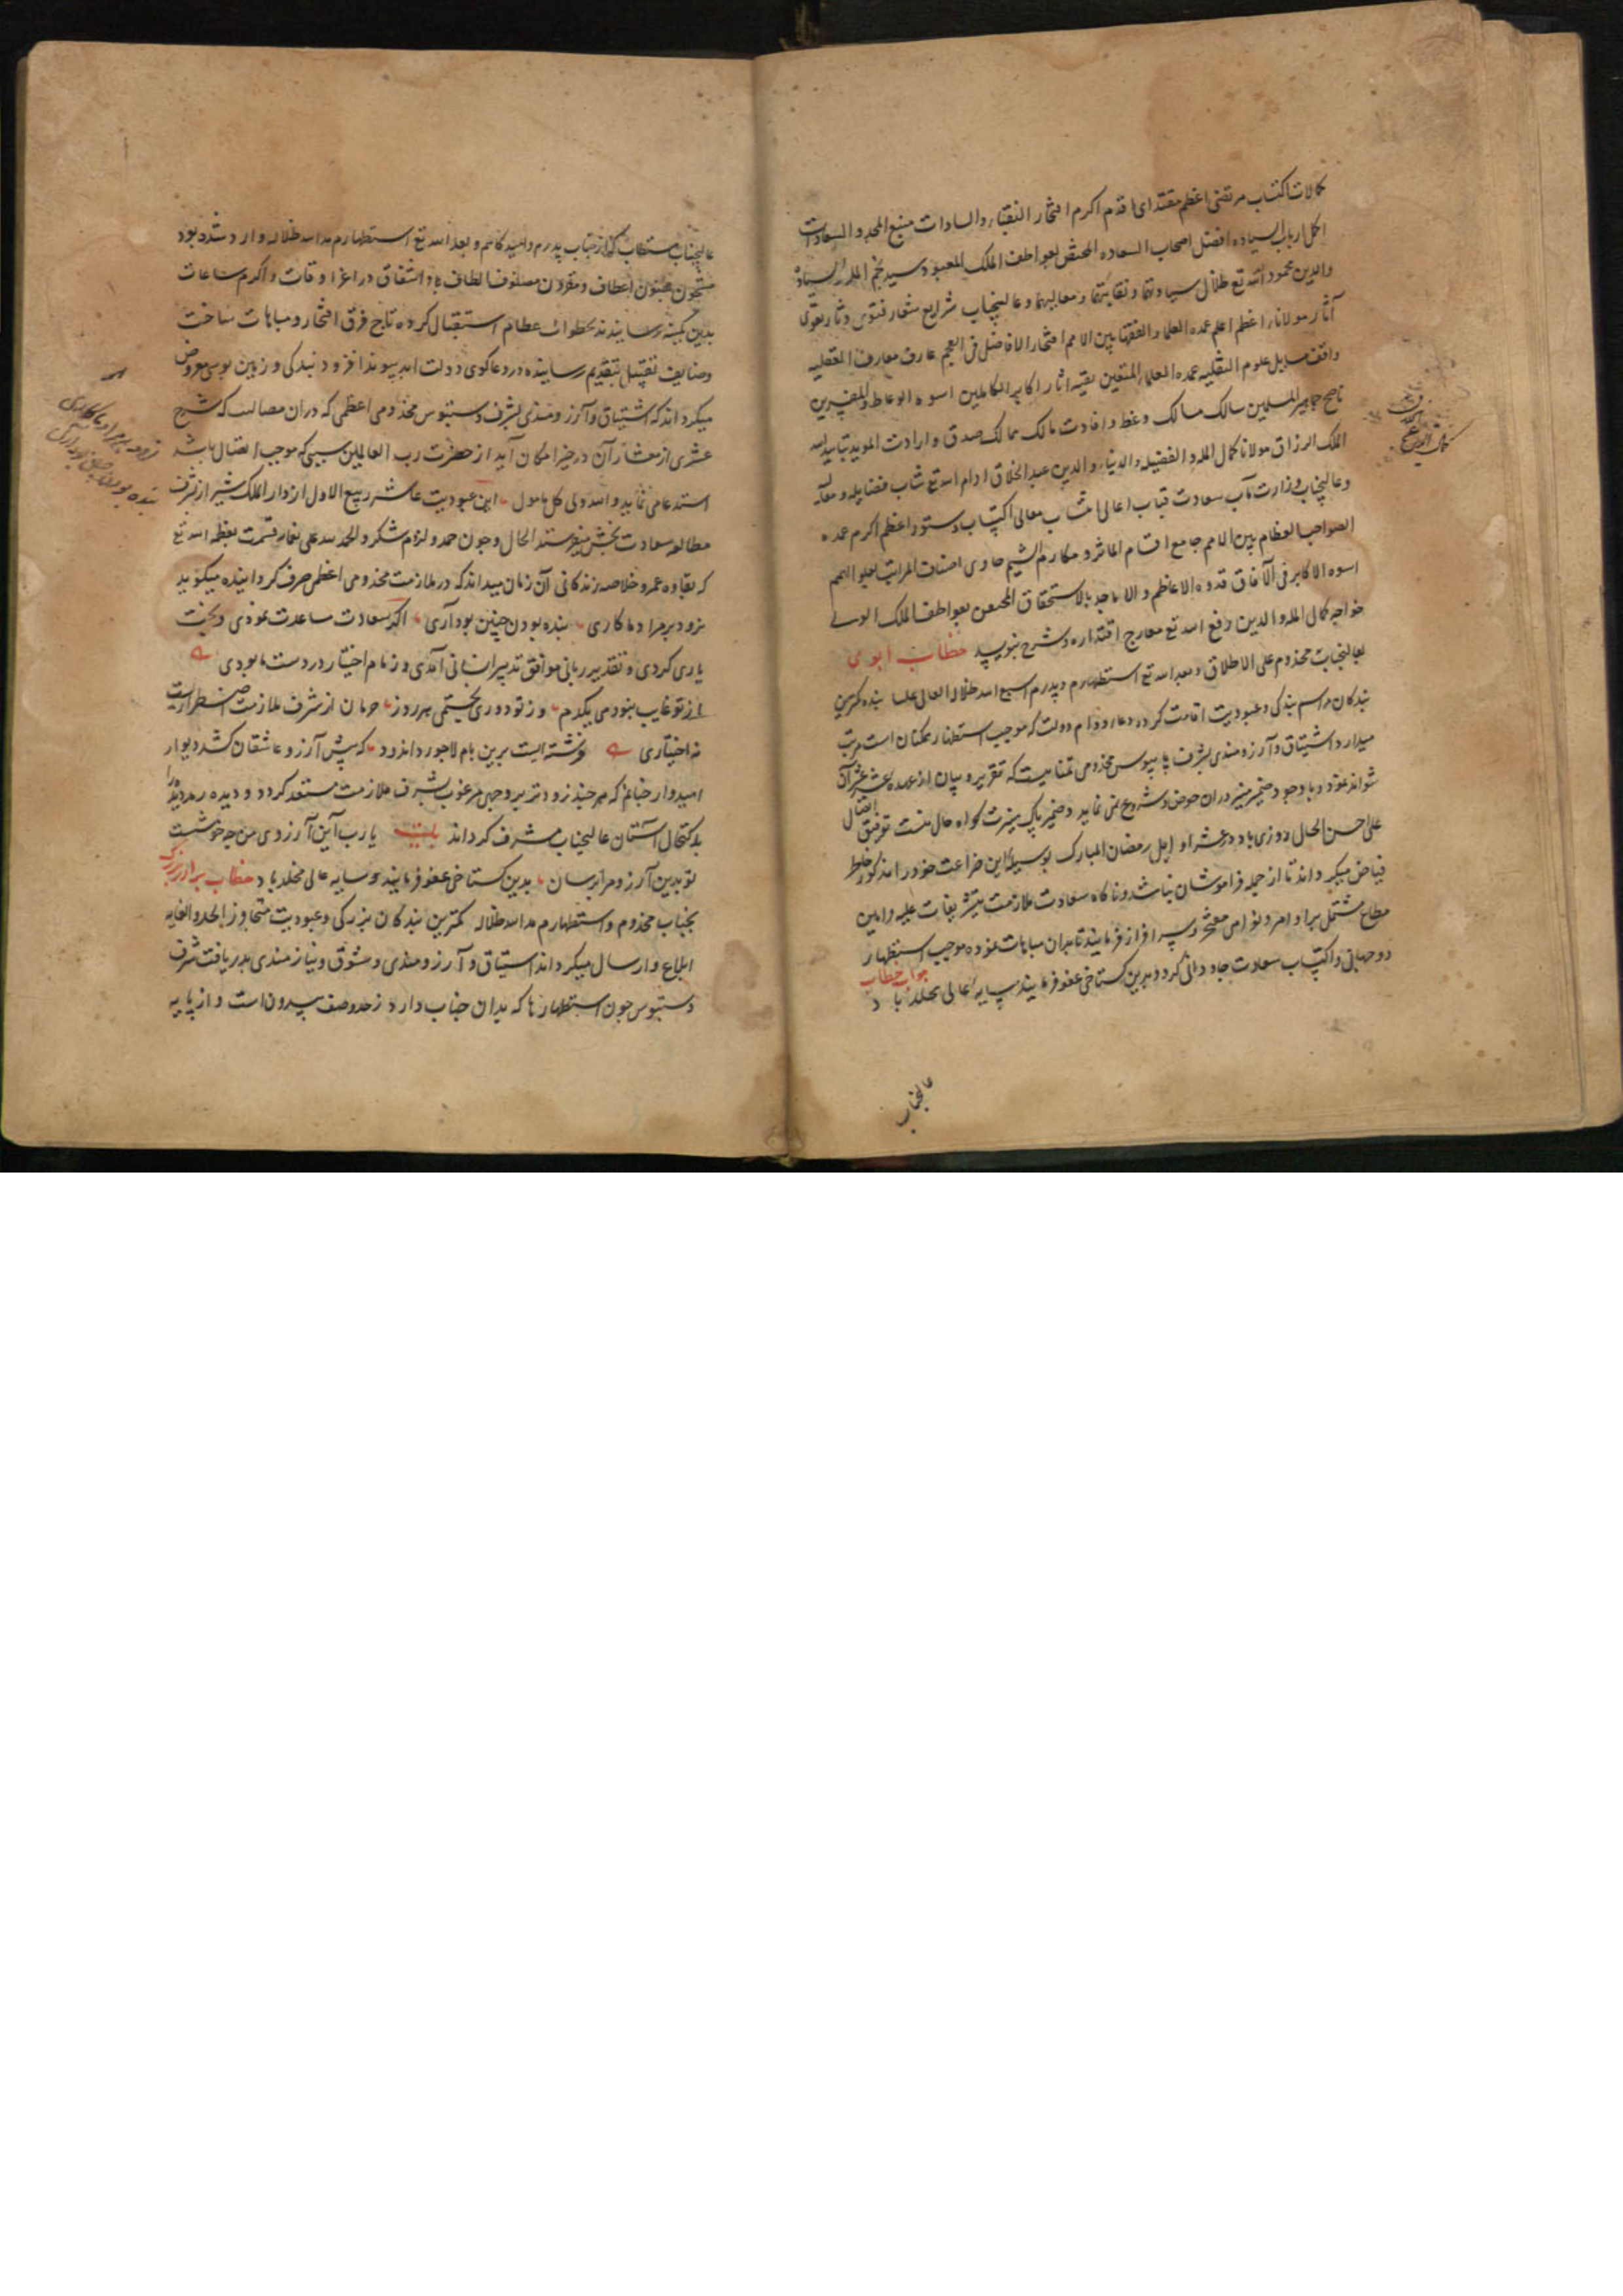 کمالات اکتساب مرتضی اعظم مقتدای اقدم اکرم افتخار النقباء والسادات منبع المجد و السعادات
اکمل ارباب السیاده افضل اصحاب السعاده المختص بعواطف الملک المعبود سید نجم المله
والدین محمود الله تع ظلال سیادتهما و نقابتهما و معالیهما و عالیجناب شرایع شعار فتوی دثار تقوی
آثار مولاناء اعظم اعلم عمده العلماء و الفقها بین الامم افتخار الافاضل فی العجم عارف معارف العقلیه
واقف علوم النقلیه عمده العلماء المتقین بقیه اثار اکابر الکاملین اسوه الوعاظ والمفسرین
ناصح جماهیر المسلمین سالک مسالک وعظ و افادت مالک ممالک صدق و ارادت الموید بتایید الله
الملک الرزاق مولانا کمال المله و الفضیله والدنیا والدین عبد الخلاق ادام الله تع فضایله و معالیه
و عالیجناب وزارت مآب سعادت قباب اعالی معالی اکتساب دستور اعظم اکرم عمده
الصواحب العظام بین الامم جامع اقسام الماثر و مکارم الشیم حاوی اصناف المراتب بعلو الهمم
اسوه الاکابر فی الآفاق قدوه الاعاظم و الاماجد بالاستحقاق بعواطف الملک الولی
خواجه کمال المله و الدین رفع الله تع معارج اقتداره و شرح بنویسد خطاب ابو می
بعالیجناب مخدوم علی الاطلاق و بعد الله تع استظهارم و پدرم اسبغ الله ظلاله العالی بنده کمترین
بندگان مراسم بندگی و عبودیت اقامت کرده دعاء دوام دولت که موجب استظهار ممکنان است مرتب
میدارد اشتیاق و آرزومندی بشرف پایبوس مخدومی نه تمنائیست که تقریر و بیان از عهده عشر عشیر آن
تواند نمود و با وجود ضمیر منیر دران خوض و شروع نمی نماید و ضمیر پاک منیرت گواه حال منست توفیق اتصال
علی احسن الحال روزی باد در عشر اوایل رمضان المبارک بوسیله این ضراعت خود را مذکور خاطر
فیاض میگرداند تا از جمله فراموشان نباشد و ناگاه سعادت ملازمت بتشریفات علیه و امین
مطاع مشتمل بر اوامر و نواهی مفتخر و سرافراز فرمایند تا بدان مباهات نموده موجب استظهار
دوجهانی و اکتساب سعادت جاودانی گردد و بدین گستاخی عفو فرمایند سایه اعالی مخلد باد جواب خطاب
عالیجناب
عالیجناب مستطاب که از جناب پدرم و امیدگاهم و بعد الله تع استظهارم مد الله ظلاله وارد شده بود
مشحون بفنون اعطاف و مقرون بصنوف الطاف و اشفاق در اعز اوقات و اکرم ساعات
بدین کمینه رسانیدند بخطوات عظام استقبال کرده تاج فرق افتخار و مباهات ساخت
وظایف تقبیل بتقدیم رسانیده در دعاگوی دولت ابد پیوند افزود و بندگی و زمین بوسی معروض
میگرداند که اشتیاق و آرزومندی بشرف دستبوس مخدومی اعظمی که دران که شرح
عشری از معشار آن در حیز امکان آید از حضرت رب العالمین سببی که موجب اتصال باشد
استدعا می نماید و الله ولی کل مامول این عبودیت عاشر ربیع الاول از دار الملک شیراز بشرف
مطالعه سعادت بخش میفرستد الحال و چون حمد و لزوم شکر و الحمد لله علی نعمائه قسمت بعظمه الله تع
که نقاوه عمر و خلاصه زندگانی آن زمان میداند که در ملازمت مخدومی اعظمی صرف گردانیده میگوید
نرود بر مراد ما کاری بنده بودن چنین بود آری اگر سعادت مساعدت نمودی و بخت
یاری کردی و تقدیر ربانی موافق تدبیر انسانی آمدی و زمام اختیار در دست ما بودی
از تو غایب نبودمی یکدم وز تو دوری نجستمی هر روز حرمان از شرف ملازمت اضطراریست
نه اختیاری فرشته ایست برین بام لاجورد اندود که پیش آرزوء عاشقان کشد دیوار
امیدوار چنانم که هر چند زودتر بر وجهی مرغوب بشرف ملازمت مستعد گردد و دیده رمد دیده را
بکحال آستان عالیجناب مشرف گرداند بیت یارب این آرزوی من چه خوشست
تو بدین آرزو مرا برسان بدین گستاخی عفو فرمایند و سایه عالی مخلد باد خطاب برادر بزرگ
بجناب مخدوم و استظهارم مد الله ظلاله کمترین بندگان بندگی و عبودیت متجاوز الحد و الغایه
ابلاغ و ارسال میگرداند اشتیاق و آرزومندی و شوق و نیازمندی بدریافت شرف
دستبوس چون استظهارها که بدان جناب دارد از حد وصف بیرون است و از پایه
نرود بر مراد ما کاری
بنده بودن چنین بود آری